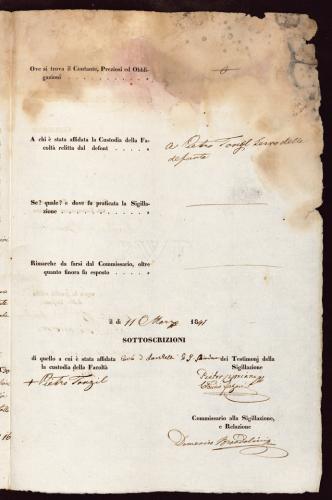 Ove si trova il Contante, Preziosi ed Obbli-
gazioni
A chi è stata affidata la Custodia della Fa-
coltà relitta dal defont
a Pietro Tonzil servo della
defunta
Se? quale? e dove fu praticata la Sigilla-
zione
Rimarche da farsi dal Commissario, oltre
quanto finora fu esposto
il di 11 Marzo 1841
SOTTOSCRIZIONI
di quello a cui è stata affidata
la custodia della Facoltà
+ Pietro Tonzil
dei Testimonj della
Sigillazione
Commissario alla Sigillazione,
e Relazione
Domenico